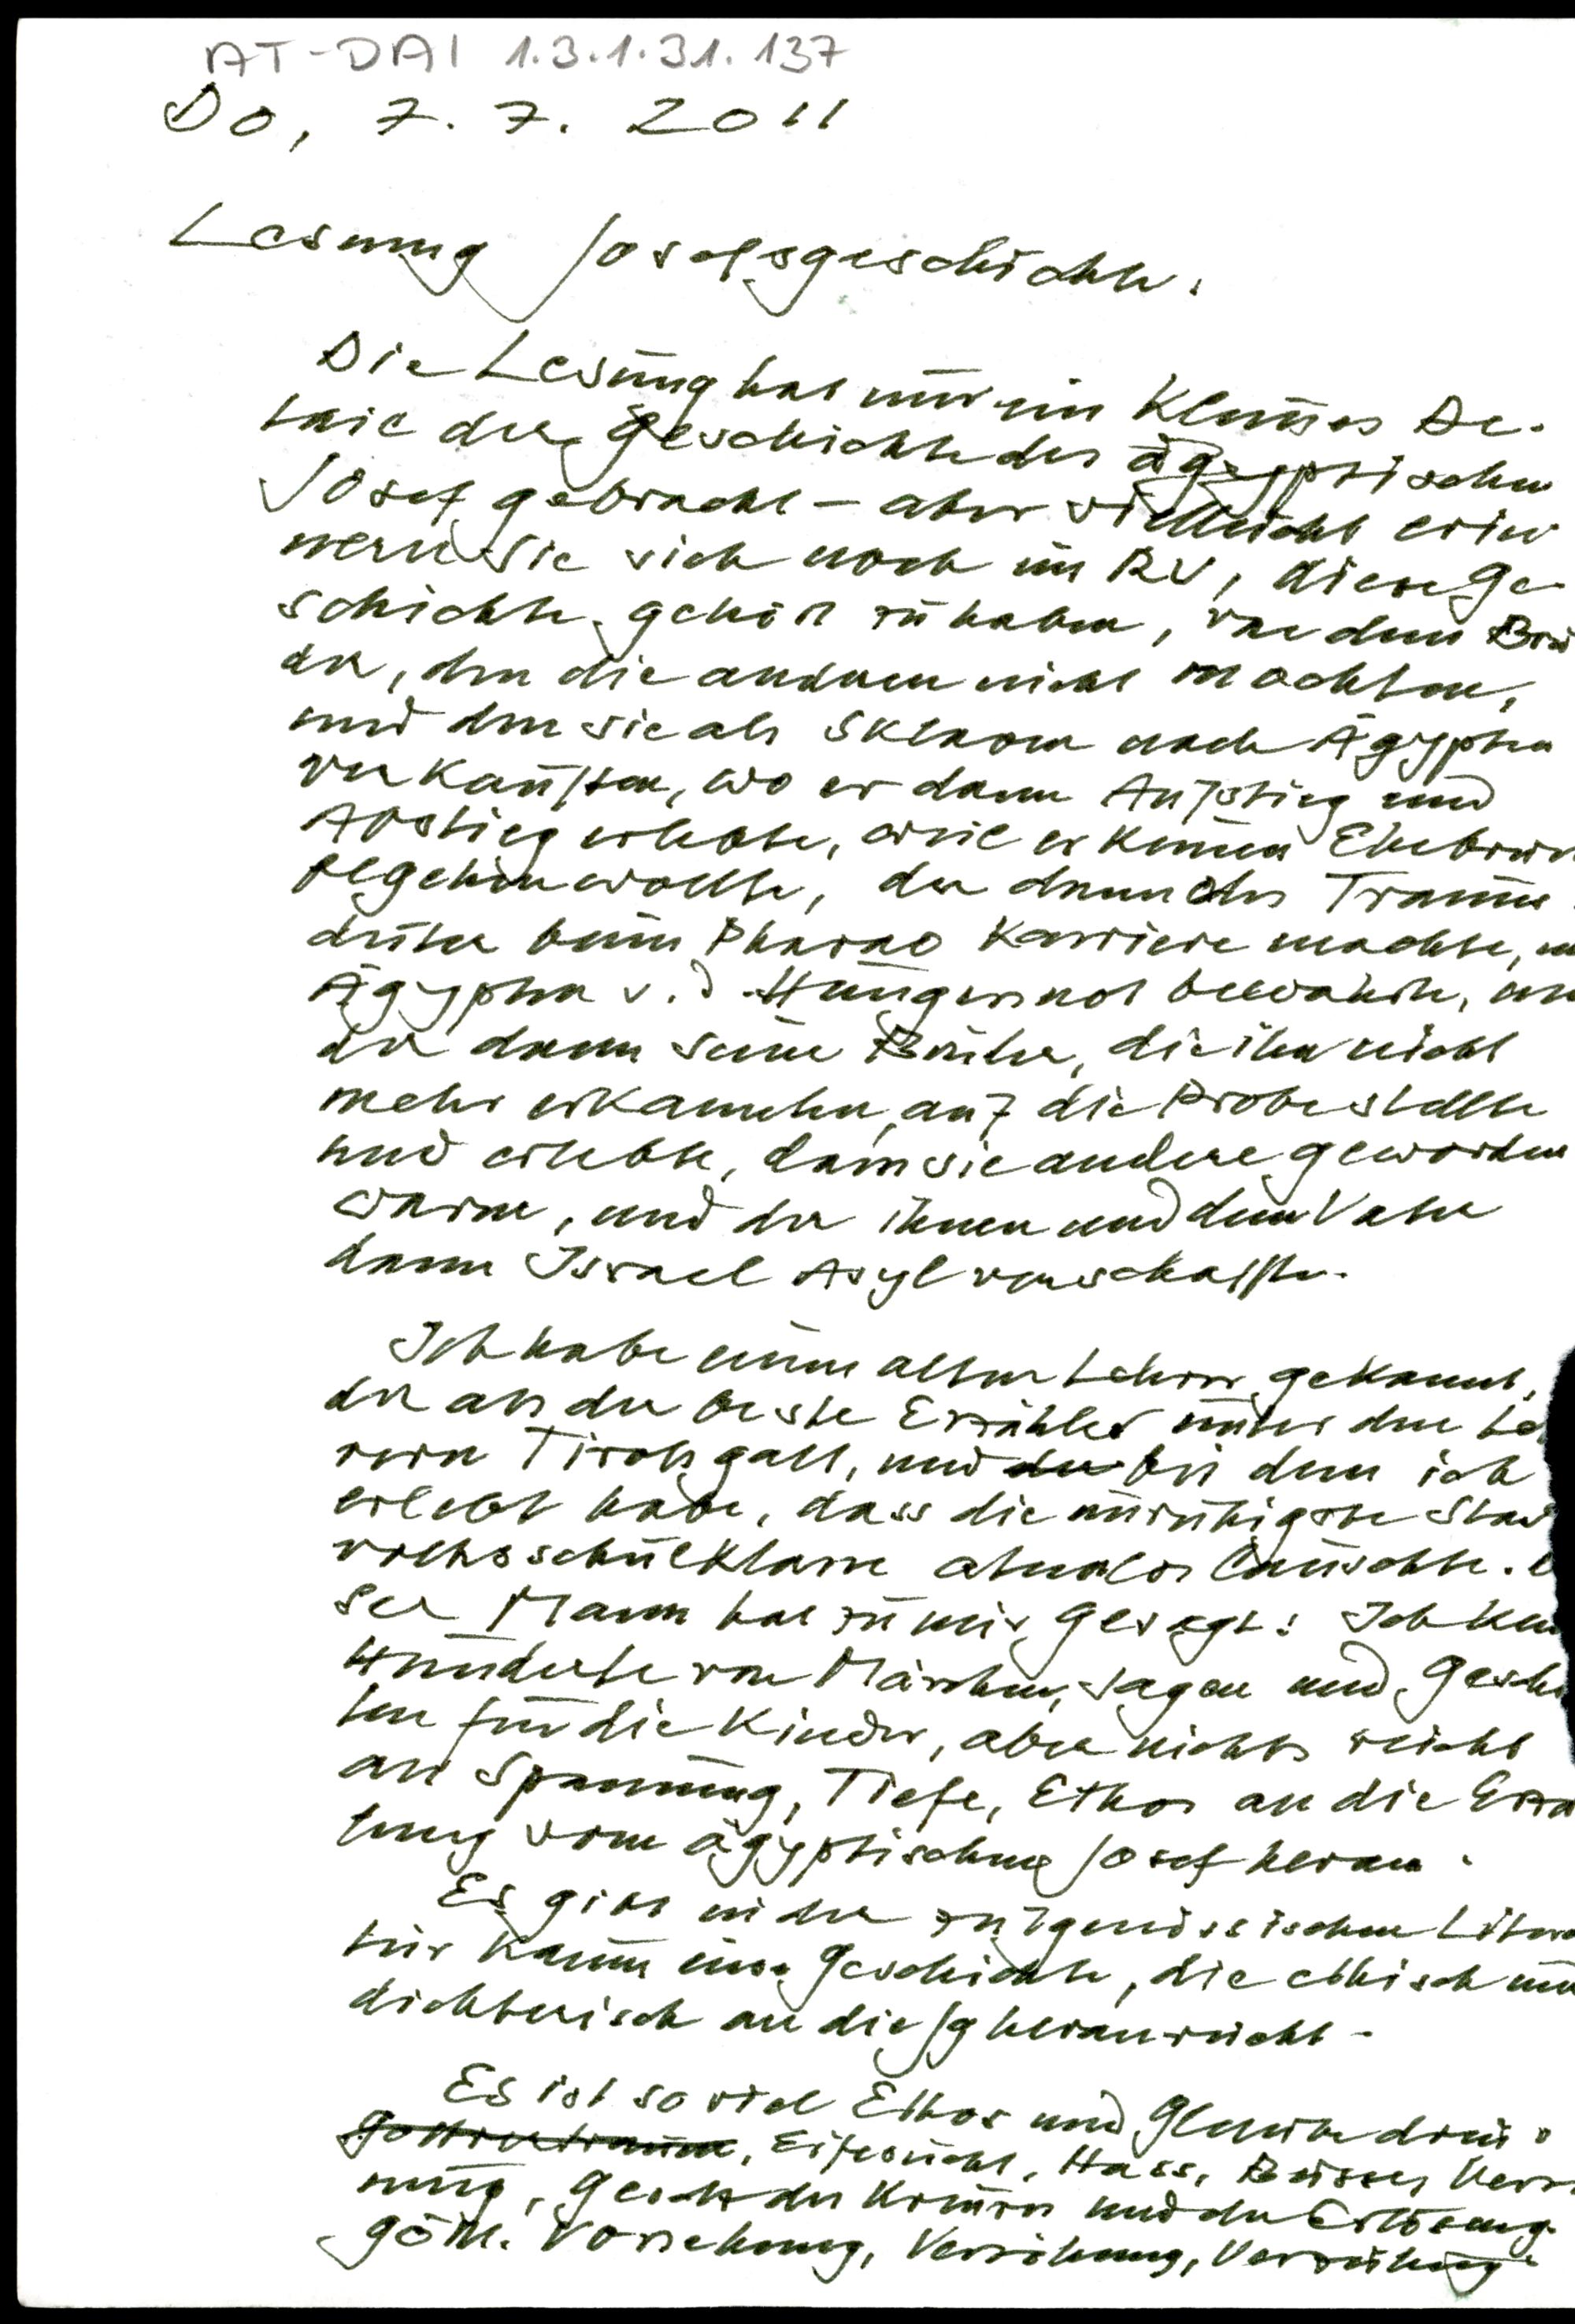 AT-DAI 1.3.1.31.137
Do, 7. 7. 2011
Lesung Josefsgeschichte.
Die Lesung hat nur ein kleines De-
tail der Geschichte des ägyptischen
Josef gebracht – aber vielleicht erin
nern Sie sich noch im RU, diese Ge-
schichte gehört zu haben, von dem Brü
der, den die anderen nicht mochten,
und den sie als Sklaven nach Ägypten
verkauften, wo er dann Aufstieg und
Abstieg erlebte, weil er keinen Ehebruch
begehen wollte, der dann als Traum-
deuter beim Pharao Karriere machte, u
Ägypten v. d. Hungersnot bewahrte, un
der dann seine Brüder, die ihn nicht
mehr erkannten, auf die Probe stellte
und erlebte, dass sie andere geworden
waren, und der ihnen und dem Vater
dann Israel Asyl verschaffte.
Ich habe einen alten Lehrer gekannt,
der als der beste Erzähler unter den Leh
rern Tirols galt, und der bei dem ich
erlebt habe, dass die unruhigste Stad
volksschulklasse atemlos lauschte.
ser Mann hat zu mir gesagt: Ich ken
Hunderte von Märchen, Sagen und Geschi
ten für die Kinder, aber nichts reicht
an Spannung, Tiefe, Ethos an die Erzä
lung vom ägyptischen Josef heran.
Es gibt in der zeitgenössischen Litera
tur kaum eine Geschichte, die ethisch un
dichterisch an die Jg heranreicht -
Es ist so viel Ethos und Glaube drin:
Gottvertrauen, Eifersucht, Hass, Busse, Verz
nung, Gesetz des Kreuzes und der Erlösung.
göttl. Vorsehung, Versöhnung, Verzeihung